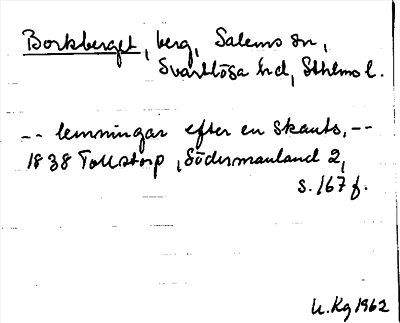 Borksberget, berg, Salems sn,
Svartlösa hd, Sthlms l.
-- lemningar efter en skants, --
1838 Tollstorp, Södermanland 2,
s. 167 f.
U. Kg 1962